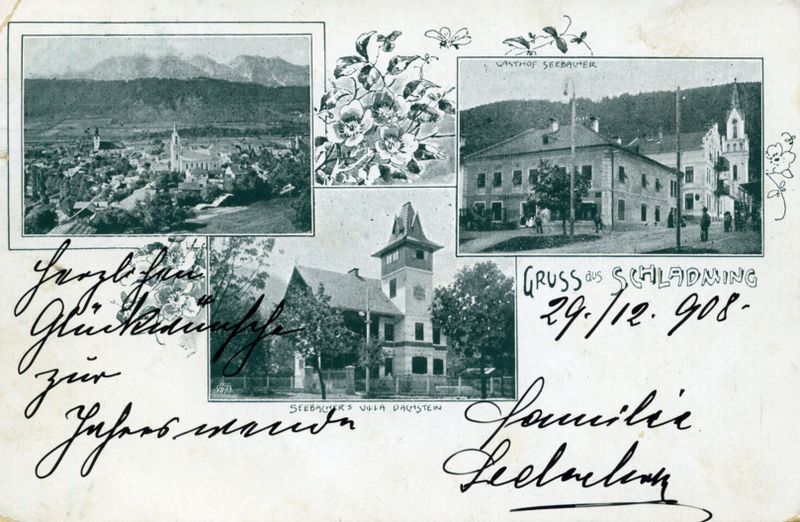 GASTHOF SEEBACHER
GRUSS aus SCHLADMING
29./12. 908.
SEEBACHER'S VILLA DACHSTEIN
Herzlichen
Glückwünsche
zur
Jahreswende
Familie